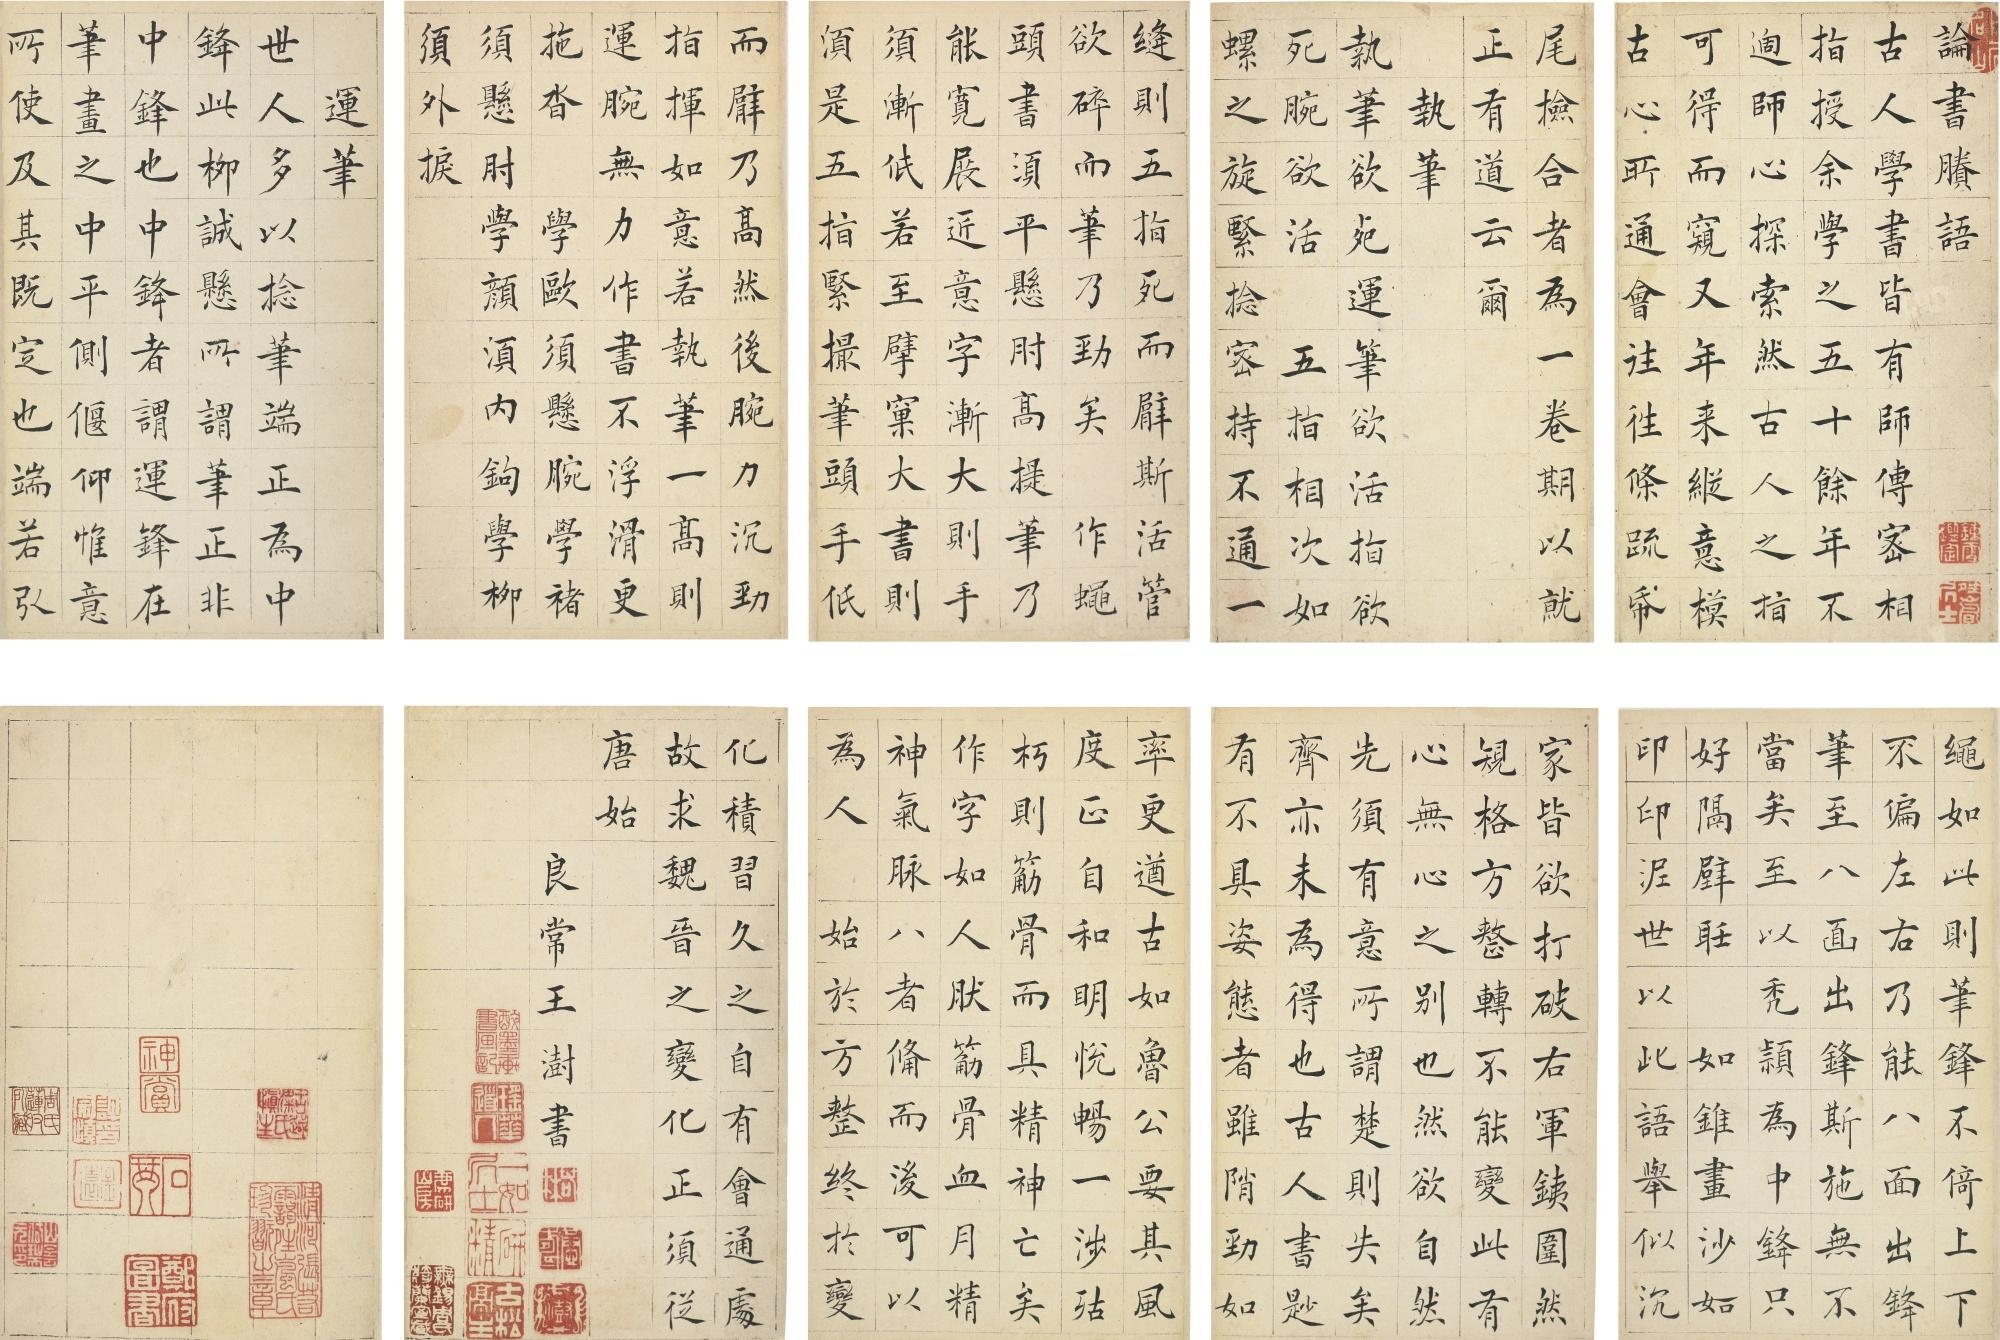 論書賸語
古人學書皆有師傳密相
指授余學之五十餘年不
過師心探索然古人之指
可得而窺又年来縱意模
古心所通會往往條疏帋
尾撿合者為一卷期以就
正有道云爾
執筆
執筆欲死運筆欲活指欲
死腕欲活 五指相次如
螺之旋緊捻密持不通一
縫則五指死而臂斯活管
欲碎而筆乃勁矣 作蠅
頭書須平懸肘高提筆乃
能寬展近意字漸大則手
須漸低若至擘窠大書則
須是五指緊撮筆頭手低
而臂乃高然後腕力沉勁
指揮如意若執筆一高則
運腕無力作書不浮滑更
拖沓 學歐須懸腕學褚
須懸肘學顏須内鉤學柳
須外捩
運筆
世人多以捻筆端正為中
鋒此柳誠懸所謂筆正非
中鋒也中鋒者謂運鋒在
筆畫之中平側偃仰惟意
所使及其既定也端若引
繩如此則筆鋒不倚上下
不偏左右乃能八面出鋒
筆至八面出鋒斯施無不
當矣至以禿穎為中鋒只
好隔壁聽 如錐畫沙如
印印泥世以此語舉似沉
家皆欲打破右軍鐵圍然
規格方整轉不能變此有
心無心之別也然欲自然
先須有意所謂楚則失矣
齊亦未為得也古人書妙
有不具姿態者雖陗勁如
率更遒古如魯公要其風
度正自和明悅暢一涉枯
朽則筋骨而具精神亡矣
作字如人肰筋骨血月精
神氣脉八者備而後可以
為人 始於方整終於變
化積習久之自有會通處
故求魏晉之變化正須從
唐始
良常王澍書
神賞